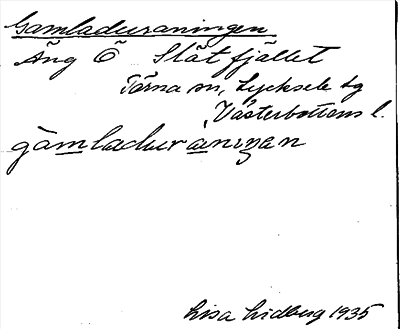 Gamladuraningen
Äng Ö Slätfjället
Tärna sn, Lycksele lg
Västerbottens l.
gamladuraniŋan
Lisa Lidberg 1935